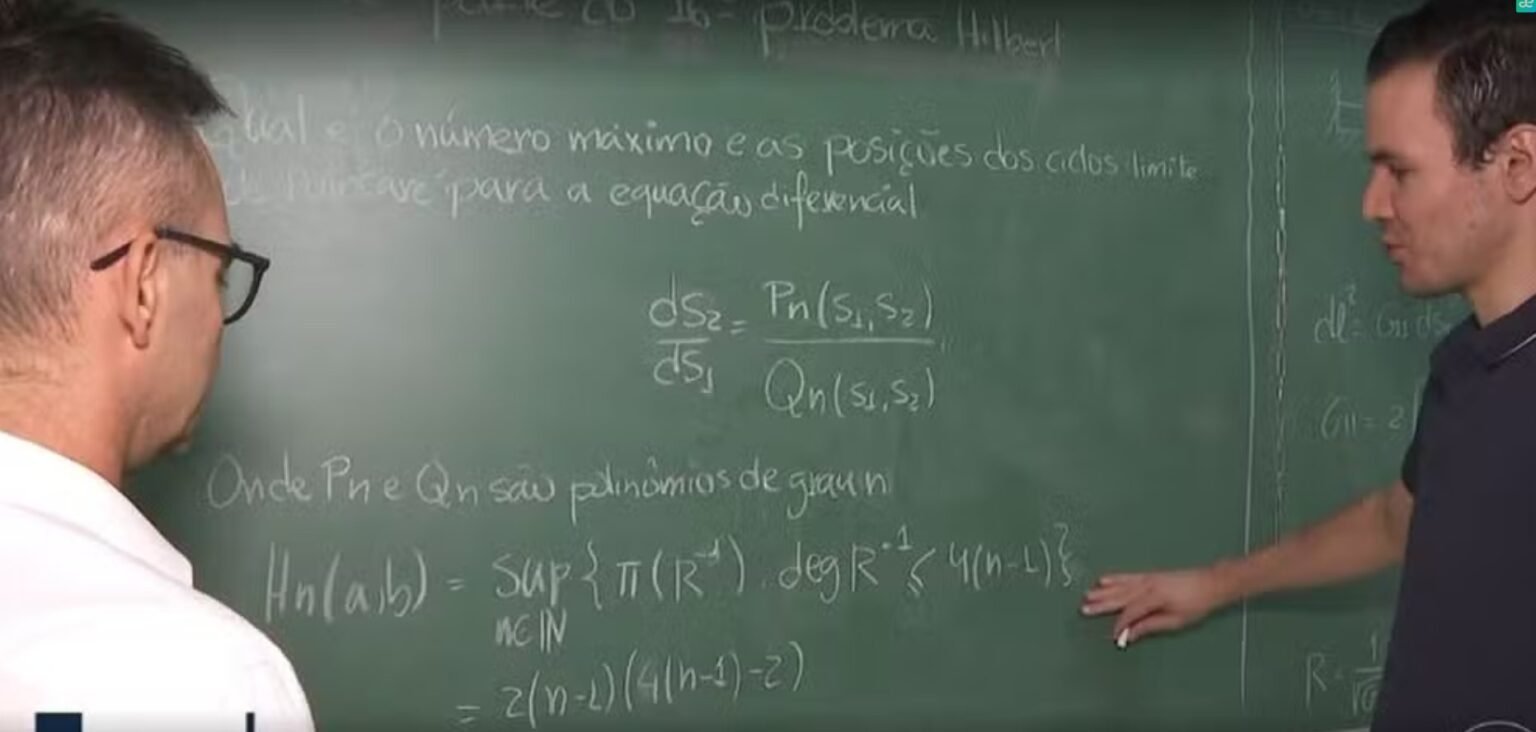 problema Hilbert
Qual é o número máximo e as posições dos ciclos limite
para a equação diferencial
dS₂/dS₁ = Pn(S₁,S₂)/Qn(S₁,S₂)
Onde Pn e Qn são polinômios de grau n
Hn(a,b) = Sup{π(R⁻¹). deg R⁻¹ ≤ 4(n-1)}
n∈ℕ
= 2(n-1)(4(n-1)-2)
G₁₁ = 2